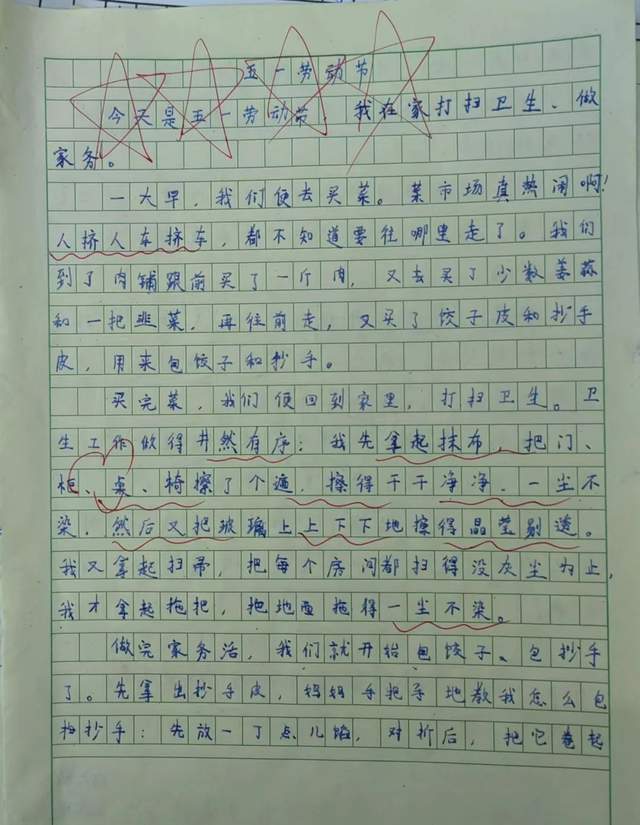 五一劳动节
今天是五一劳动节，我在家打扫卫生、做
家务。
一大早，我们便去买菜。菜市场真熱闹啊!
人挤人车挤车，都不知道要往哪里走了。我们
到了肉铺跟前买了一斤肉，又去买了少数姜蒜
和一把韭菜，再往前走，又买了饺子皮和抄手
皮，用来包饺子和抄手。
买完菜，我们便回到家里，打扫卫生。卫
生工作做得井然有序：我先拿起抹布，把门、
柜、桌、椅擦了个遍，擦得干干净净，一尘不
染，然后又把玻璃上上下下地擦得晶莹剔透。
我又拿起扫帚，把每个房间都扫得没灰尘为止，
我才拿起拖把，把地面拖得一尘不染。
做完家务活，我们就开始包饺子、包抄手
了。先拿出抄手皮，妈妈手把手地教我怎么包
抄手：先放一丁点儿馅，对折后，把它卷起